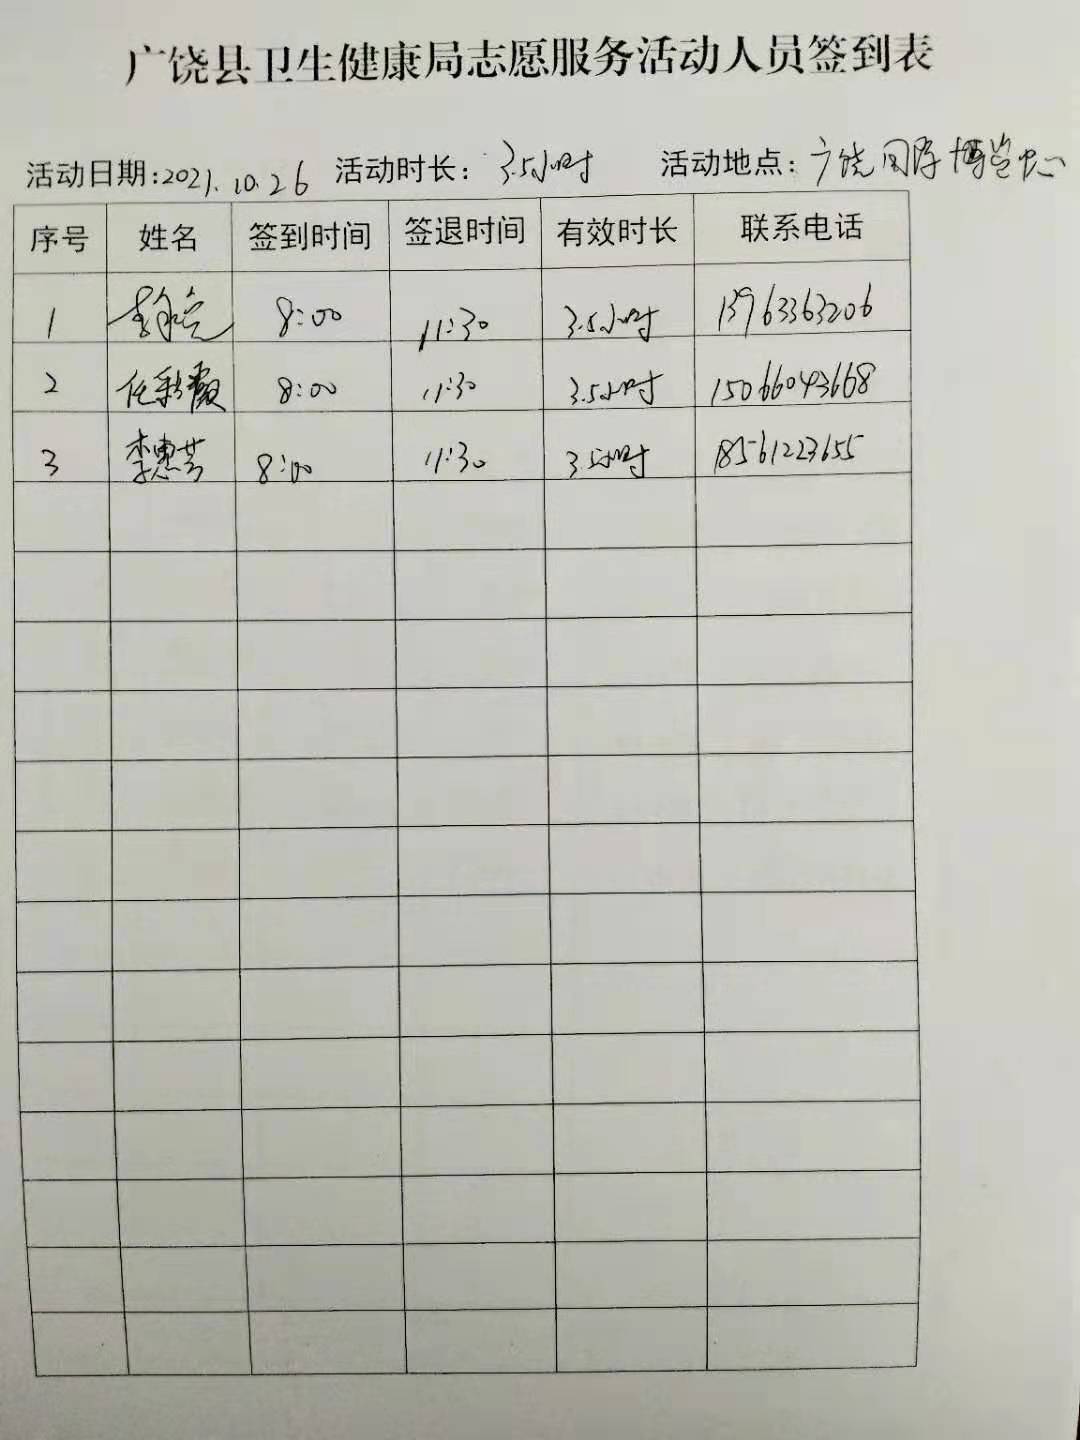 广饶县卫生健康局志愿服务活动人员签到表
活动日期:2021.10.26 活动时长: 3.5小时 活动地点: 广饶国际博览中心
序号 姓名 签到时间 签退时间 有效时长 联系电话
1 8:00 11:30 3.5小时 13963363206
2 任彩霞 8:00 11:30 3.5小时 15066043668
3 李惠芳 8:00 11:30 3.5小时 18561223655